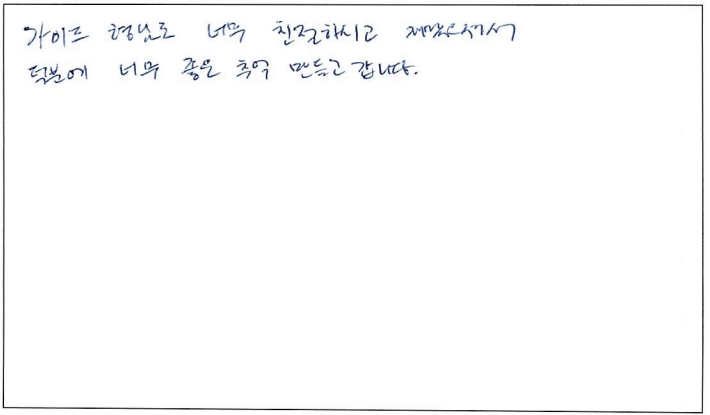 가이드 형님도 너무 친절하시고 재밌으셔서
덕분에 너무 좋은 추억 만들고 갑니다.